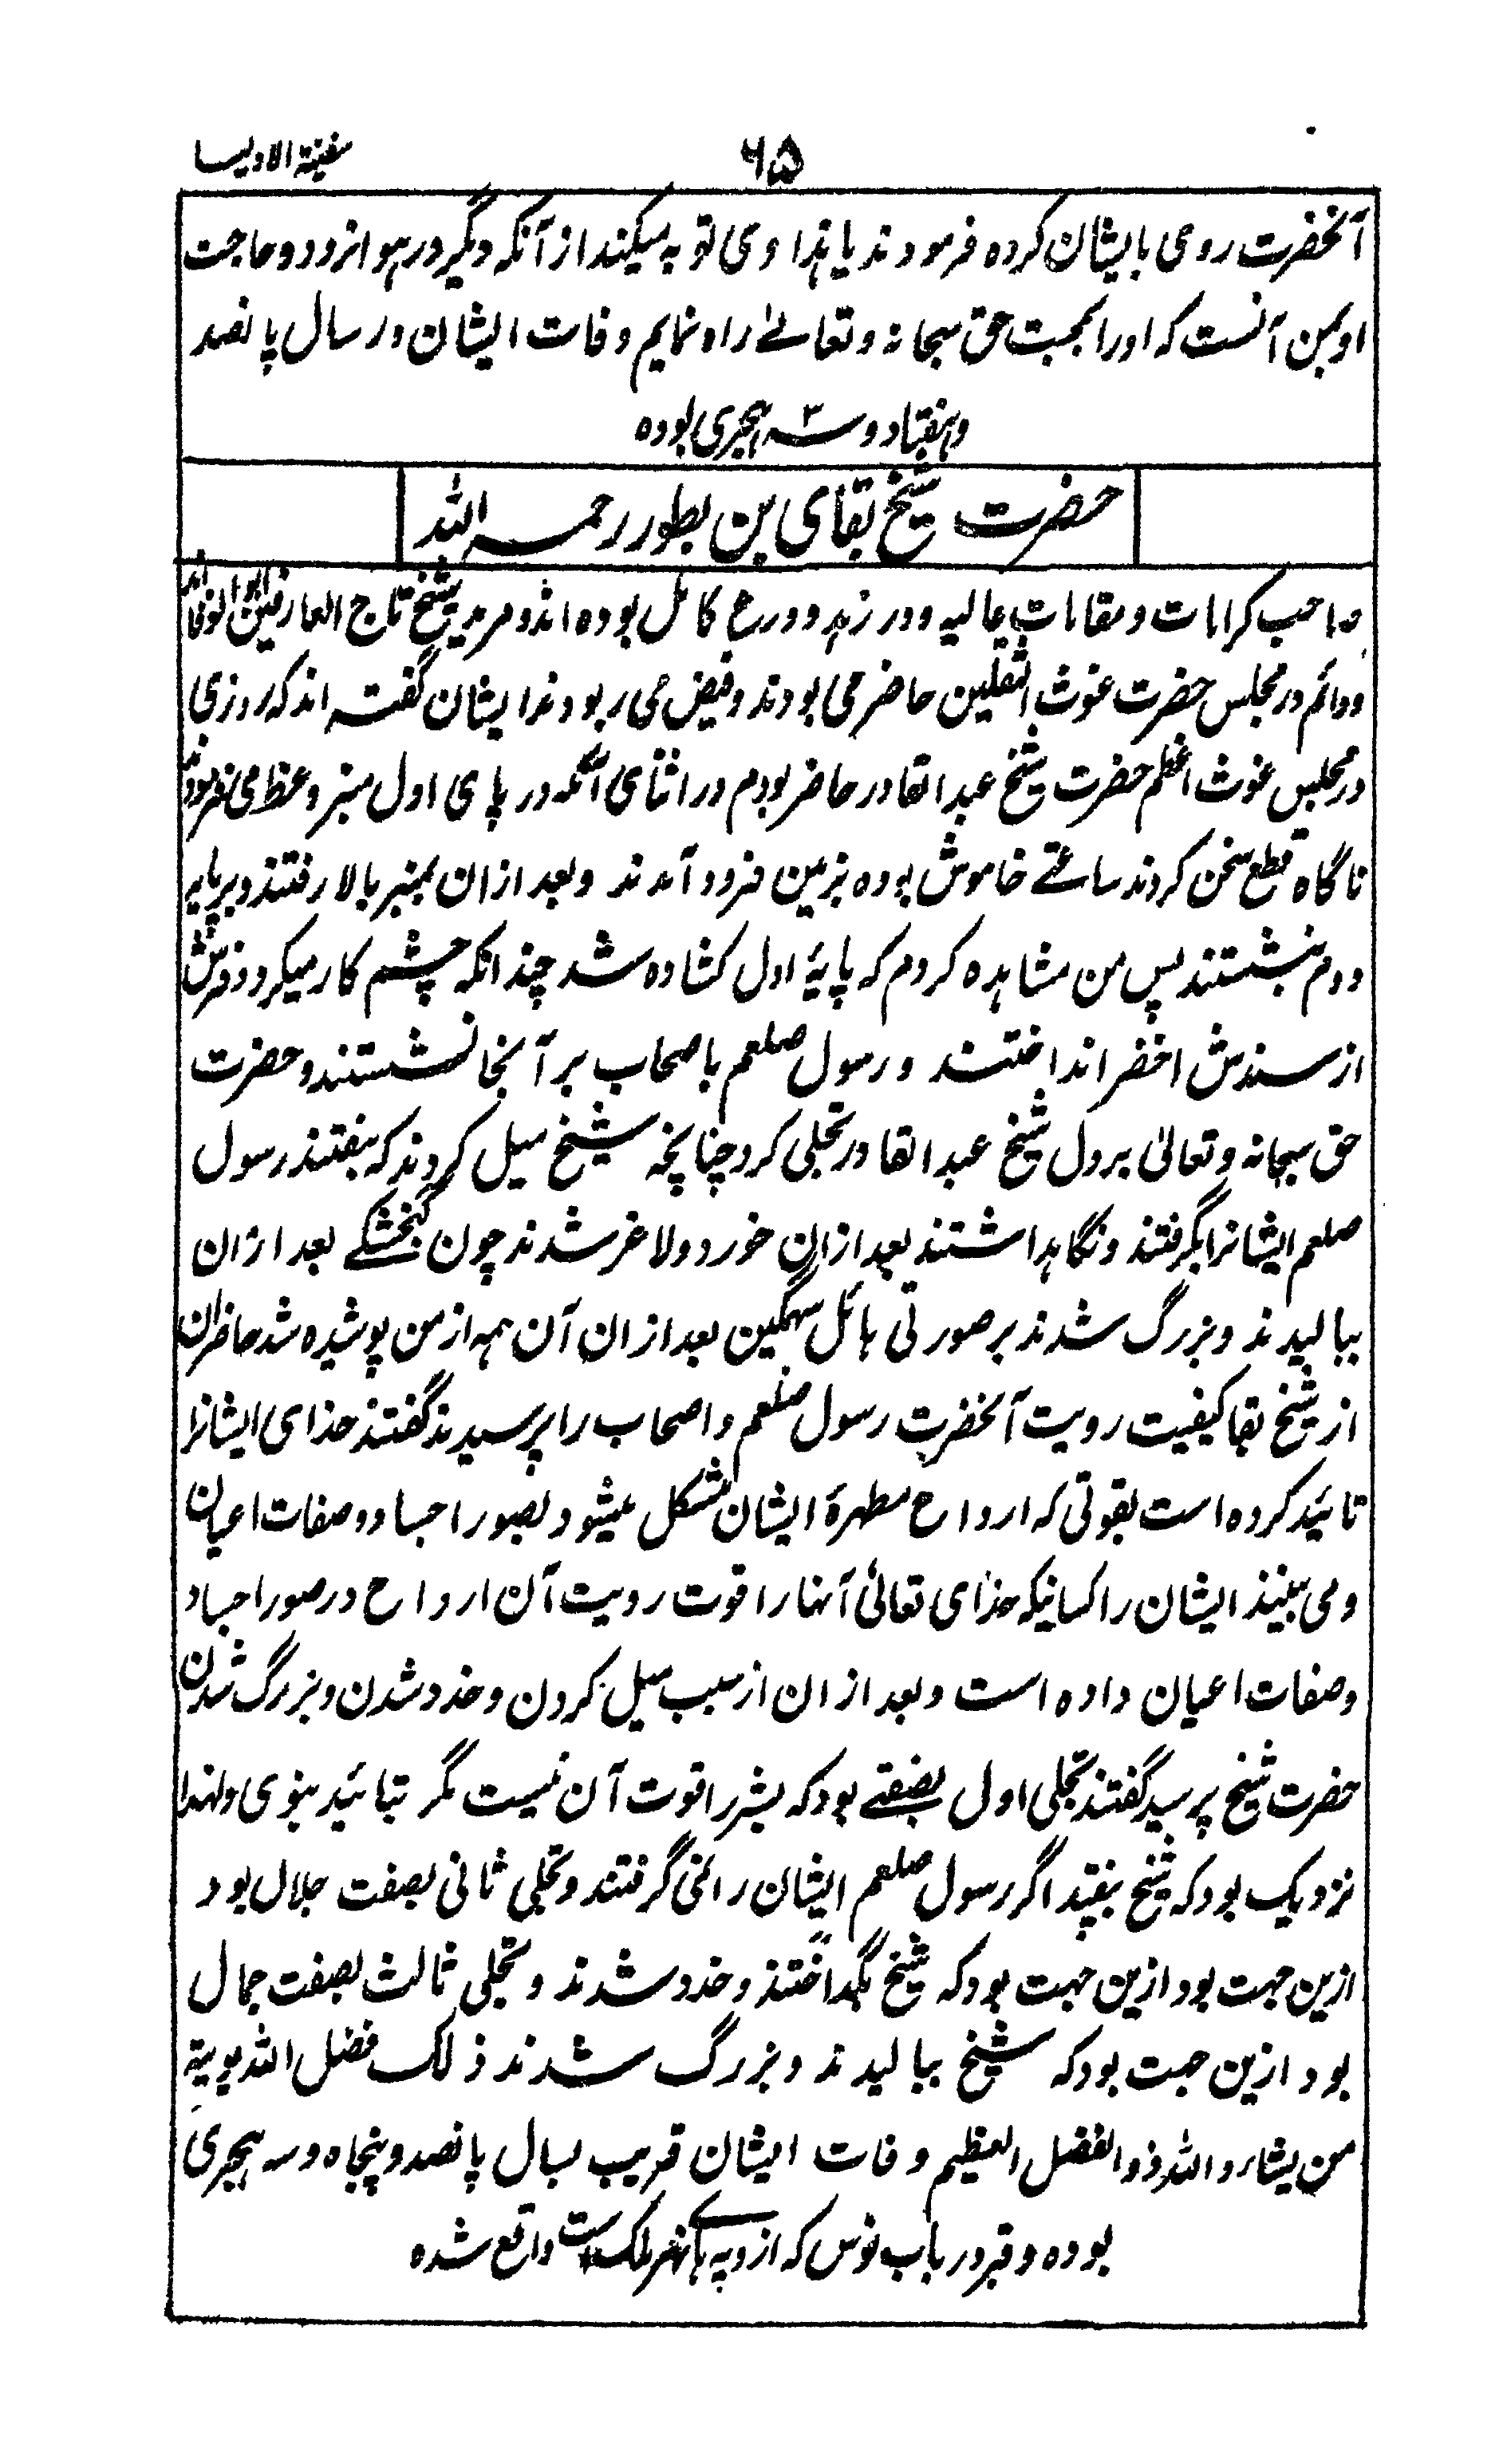 سفینة الاولیا
۶۵
آنحضرت روی بایشان کرده فرمودند یا هذا وی توبه میکند از آنکه دیگر در هوا نرود و حاجت
او بمن آنست که او را بمحبت حق سبحانه و تعالےٰ راه نمایم وفات ایشان در سال پانصد
و هفتاد و سه ۳ هجری بوده
حضرت شیخ بقای بن بطور رحمه الله
صاحب کرامات و مقامات عالیه و در زهد و ورع کامل بوده اند و مرید شیخ تاج العارفین ابو الوفا اند
و دائم در مجلس حضرت غوث الثقلین حاضر می بودند و فیض می ربودند ایشان گفته اند که روزی
در مجلس غوث اعظم حضرت شیخ عبد القادر حاضر بودم در اثنای آنکه در پای اول منبر وعظ می فرمودند
ناگاه قطع سخن کردند ساعتے خاموش بوده بزمین فرود آمدند و بعد ازان بمنبر بالا رفتند و بر پایه
دوم بنشستند پس من مشاهده کردم که پایهٔ اول کشاده شد چندانکه چشم کار میکرد و فرش
از سندس اخضر انداختند و رسول صلعم با صحاب بر آنجا نشستند و حضرت
حق سبحانه و تعالیٰ بر دل شیخ عبد القادر تجلی کرد چنانچه شیخ میل کردند که بیفتند رسول
صلعم ایشانرا بگرفتند و نگاهداشتند بعد ازان خورد و لاغر شدند چون گنجشکے بعد ازان
ببالیدند و بزرگ شدند بر صورتی هائل سهمگین بعد ازان آن همه از من پوشیده شد حاضران
از شیخ بقا کیفیت رویت آنحضرت رسول صلعم و اصحاب را پرسیدند گفتند خدای ایشانرا
تائید کرده است بقوتی که ارواح مطهرهٔ ایشان متشکل میشود بصور اجساد و صفات اعیان
و می بینند ایشان را کسانیکه خدای تعالیٰ آنها را قوت رویت آن ارواح در صور اجساد
و صفات اعیان داده است و بعد ازان از سبب میل کردن و خرد شدن و بزرگ شدن
حضرت شیخ پرسید گفتند تجلی اول بصفتے بود که بشر را قوت آن نیست مگر بتائید نبوی و لهذا
نزدیک بود که شیخ بیفتد اگر رسول صلعم ایشان را نمی گرفتند و تجلی ثانی بصفت جلال بود
ازین جهت بود ازین جهت بود که شیخ بگداختند و خرد شدند و تجلی ثالث بصفت جمال
بود ازین جهت بود که شیخ ببالیدند و بزرگ شدند ذلک فضل الله یوتیه
من یشاء و الله ذو الفضل العظیم وفات ایشان قریب بسال پانصد و پنجاه و سه هجری
بوده و قبر در باب نوس که از دیه هائے نهر ملک ست واقع شده